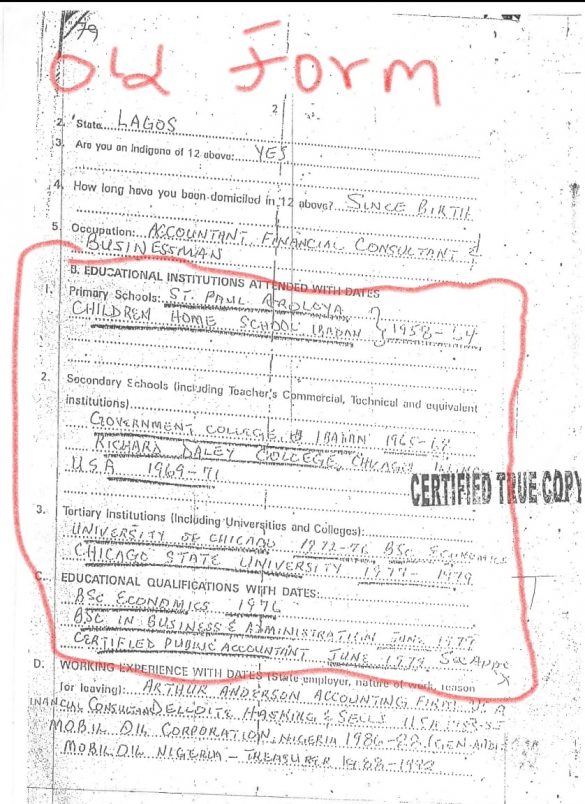 79
Old Form
2
2. State LAGOS
3. Are you an Indigene of 12 above: YES
4. How long have you been domiciled in 12 above? SINCE BIRTH
5. Occupation: ACCOUNTANT, FINANCIAL CONSULTANT &
BUSINESSMAN
B. EDUCATIONAL INSTITUTIONS ATTENDED WITH DATES
1. Primary Schools: ST. PAUL AROLOYA
CHILDREN HOME SCHOOL IBADAN } 1958-64
2. Secondary Schools (including Teacher's Commercial, Technical and equivalent
institutions)
GOVERNMENT COLLEGE IBADAN 1965-68
RICHARD DALEY COLLEGE, CHICAGO
U.S.A 1969-71
CERTIFIED TRUE COPY
3. Tertiary Institutions (Including Universities and Colleges):
UNIVERSITY OF CHICAGO 1972-76 BSc ECONOMICS
CHICAGO STATE UNIVERSITY 1977-1979
C. EDUCATIONAL QUALIFICATIONS WITH DATES:
BSc ECONOMICS 1976
BSc IN BUSINESS & ADMINISTRATION JUNE 1979
CERTIFIED PUBLIC ACCOUNTANT JUNE 1979 See Appx
D. WORKING EXPERIENCE WITH DATES (State employer, nature of work, reason
for leaving) ARTHUR ANDERSON ACCOUNTING FIRM
CONSULTANT DELLOITE HASKING & SELLS USA 1983-85
MOBIL OIL CORPORATION, NIGERIA 1986-88
MOBIL OIL NIGERIA - TREASURER 1988-1992